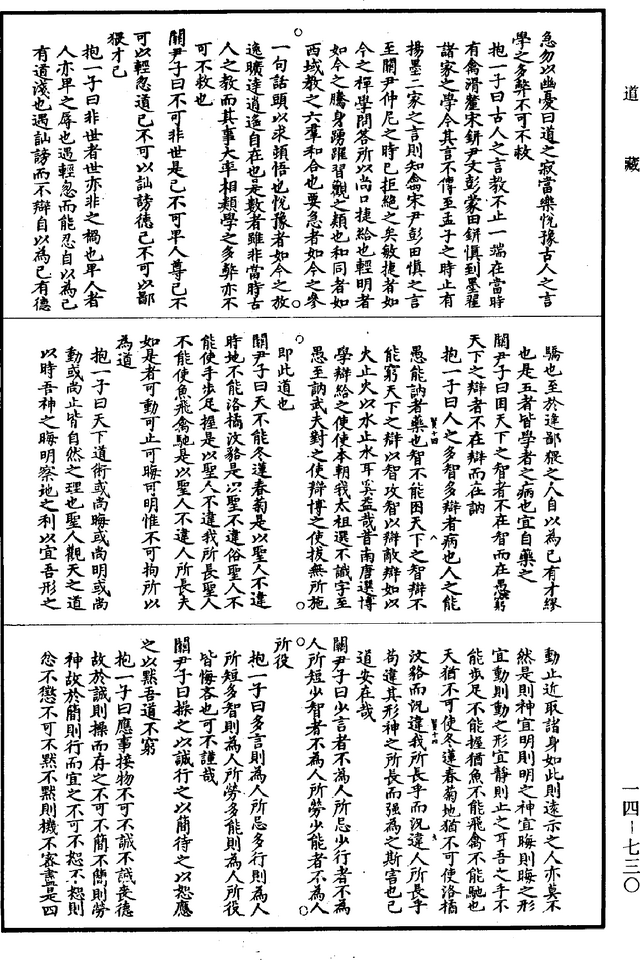 道藏
急勿以幽憂曰道之寂當樂恱豫古人之言
學之多弊不可不救
抱一子曰古人之言教不止一端在當時
有禽滑釐宋鈃尹文彭蒙田鈃慎到墨翟
諸家之學令其言不傳至孟子之時止有
揚墨二家之言則知禽宋尹彭田慎之言
至關尹仲尼之時已拒絕之矣敏捷者如
今之禪學問答所以尚口捷給也輕明者
如今之騰身踴躍習觀之類也和同者如
西域教之六羣和合也要急者如今之參
一句話頭以求頓悟也恱豫者如今之放
逸曠達逍遙自在也是數者雖非當時古
人之教而其事大率相類學之多弊亦不
可不救也
關尹子曰不可非世是已不可卑人尊已不
可以輕忽道已不可以訕謗德已不可以鄙
猥才已
抱一子曰非世者世亦非之禍也卑人者
人亦卑之辱也遇輕忽而能忍自以為已
有道淺也遇訕謗而不辯自以為已有德
驕也至於逢鄙猥之人自以為已有才繆
也是五者皆學者之病也宜自藥之
關尹子曰困天下之智者不在智而在愚窮
天下之辯者不在辯而在訥
抱一子曰人之多智多辯者病也人之能
愚能訥者藥也智不能困天下之智辯不
能窮天下之辯以智攻智以辯敵辯如以
火止火以水止水耳奚益哉昔南唐選博
學辯給之使使本朝我太祖選不識字至
愚至訥武夫對之使辯博之使拔無所施
即此道也
關尹子曰天不能冬蓮春菊是以聖人不違
時地不能洛橘汶貉是以聖不違俗聖人不
能使手步足握是以聖人不違我所長聖人
不能使魚飛禽馳是以聖人不違人所長夫
如是者可動可止可晦可明惟不可拘所以
為道
抱一子曰天下道術或尚晦或尚明或尚
動或尚止皆自然之理也聖人觀天之道
以時吾神之晦明察地之利以宜吾形之
動止近取諸身如此則遠示之人亦莫不
然是則神宜明則明之神宜晦則晦之形
宜動則動之形宜靜則止之耳吾之手不
能步足不能握猶魚不能飛禽不能馳也
天猶不可使冬蓮春菊地猶不可使洛橘
汶貉而況違我所長乎而況違人所長乎
苟違其形神之所長而強為之斯害也已
道安在哉
關尹子曰少言者不為人所忌少行者不為
人所短少智者不為人所勞少能者不為人
所役
抱一子曰多言則為人所忌多行則為人
所短多智則為人所勞多能則為人所役
皆悔吝也可不謹哉
關尹子曰操之以誠行之以簡待之以恕應
之以默吾道不窮
抱一子曰應事接物不可不誠不誠喪德
故於誠則操而存之不可不簡不簡則勞
神故於簡則行而宜之不可不恕不恕則
忿不懲不可不默不默則機不密盡是四
一四—七三〇